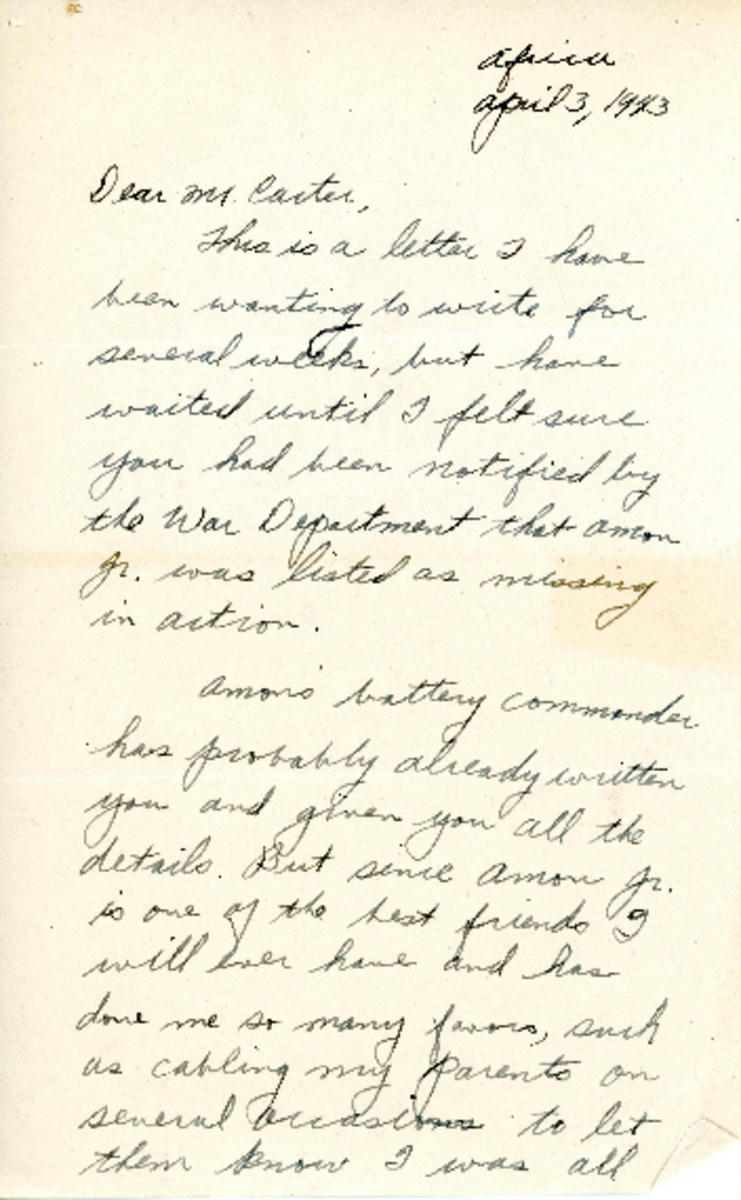 Africa
April 3, 1943
Dear Mr. Carter,
This is a letter I have
been wanting to write for
several weeks, but have
waited until I felt sure
you had been notified by
the War Department that Amon
Jr. was listed as missing
in action.
Amon's battery commander
has probably already written
you and given you all the
details. But since Amon Jr.
is one of the best friends I
will ever have and has
done me so many favors, such
as cabling my parents on
several occasions to let
them know I was all